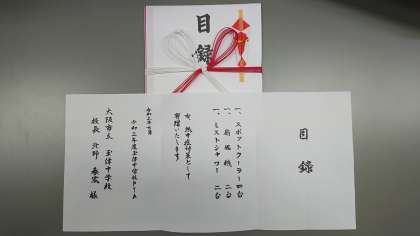 目録
目録
一、スポットクーラー 四台
一、扇風機 二台
一、ミストシャワー 二台
右、熱中症対策として
寄贈いたします
令和三年七月
令和三年度玉津中学校PTA
大阪市立 玉津中学校
校長
様